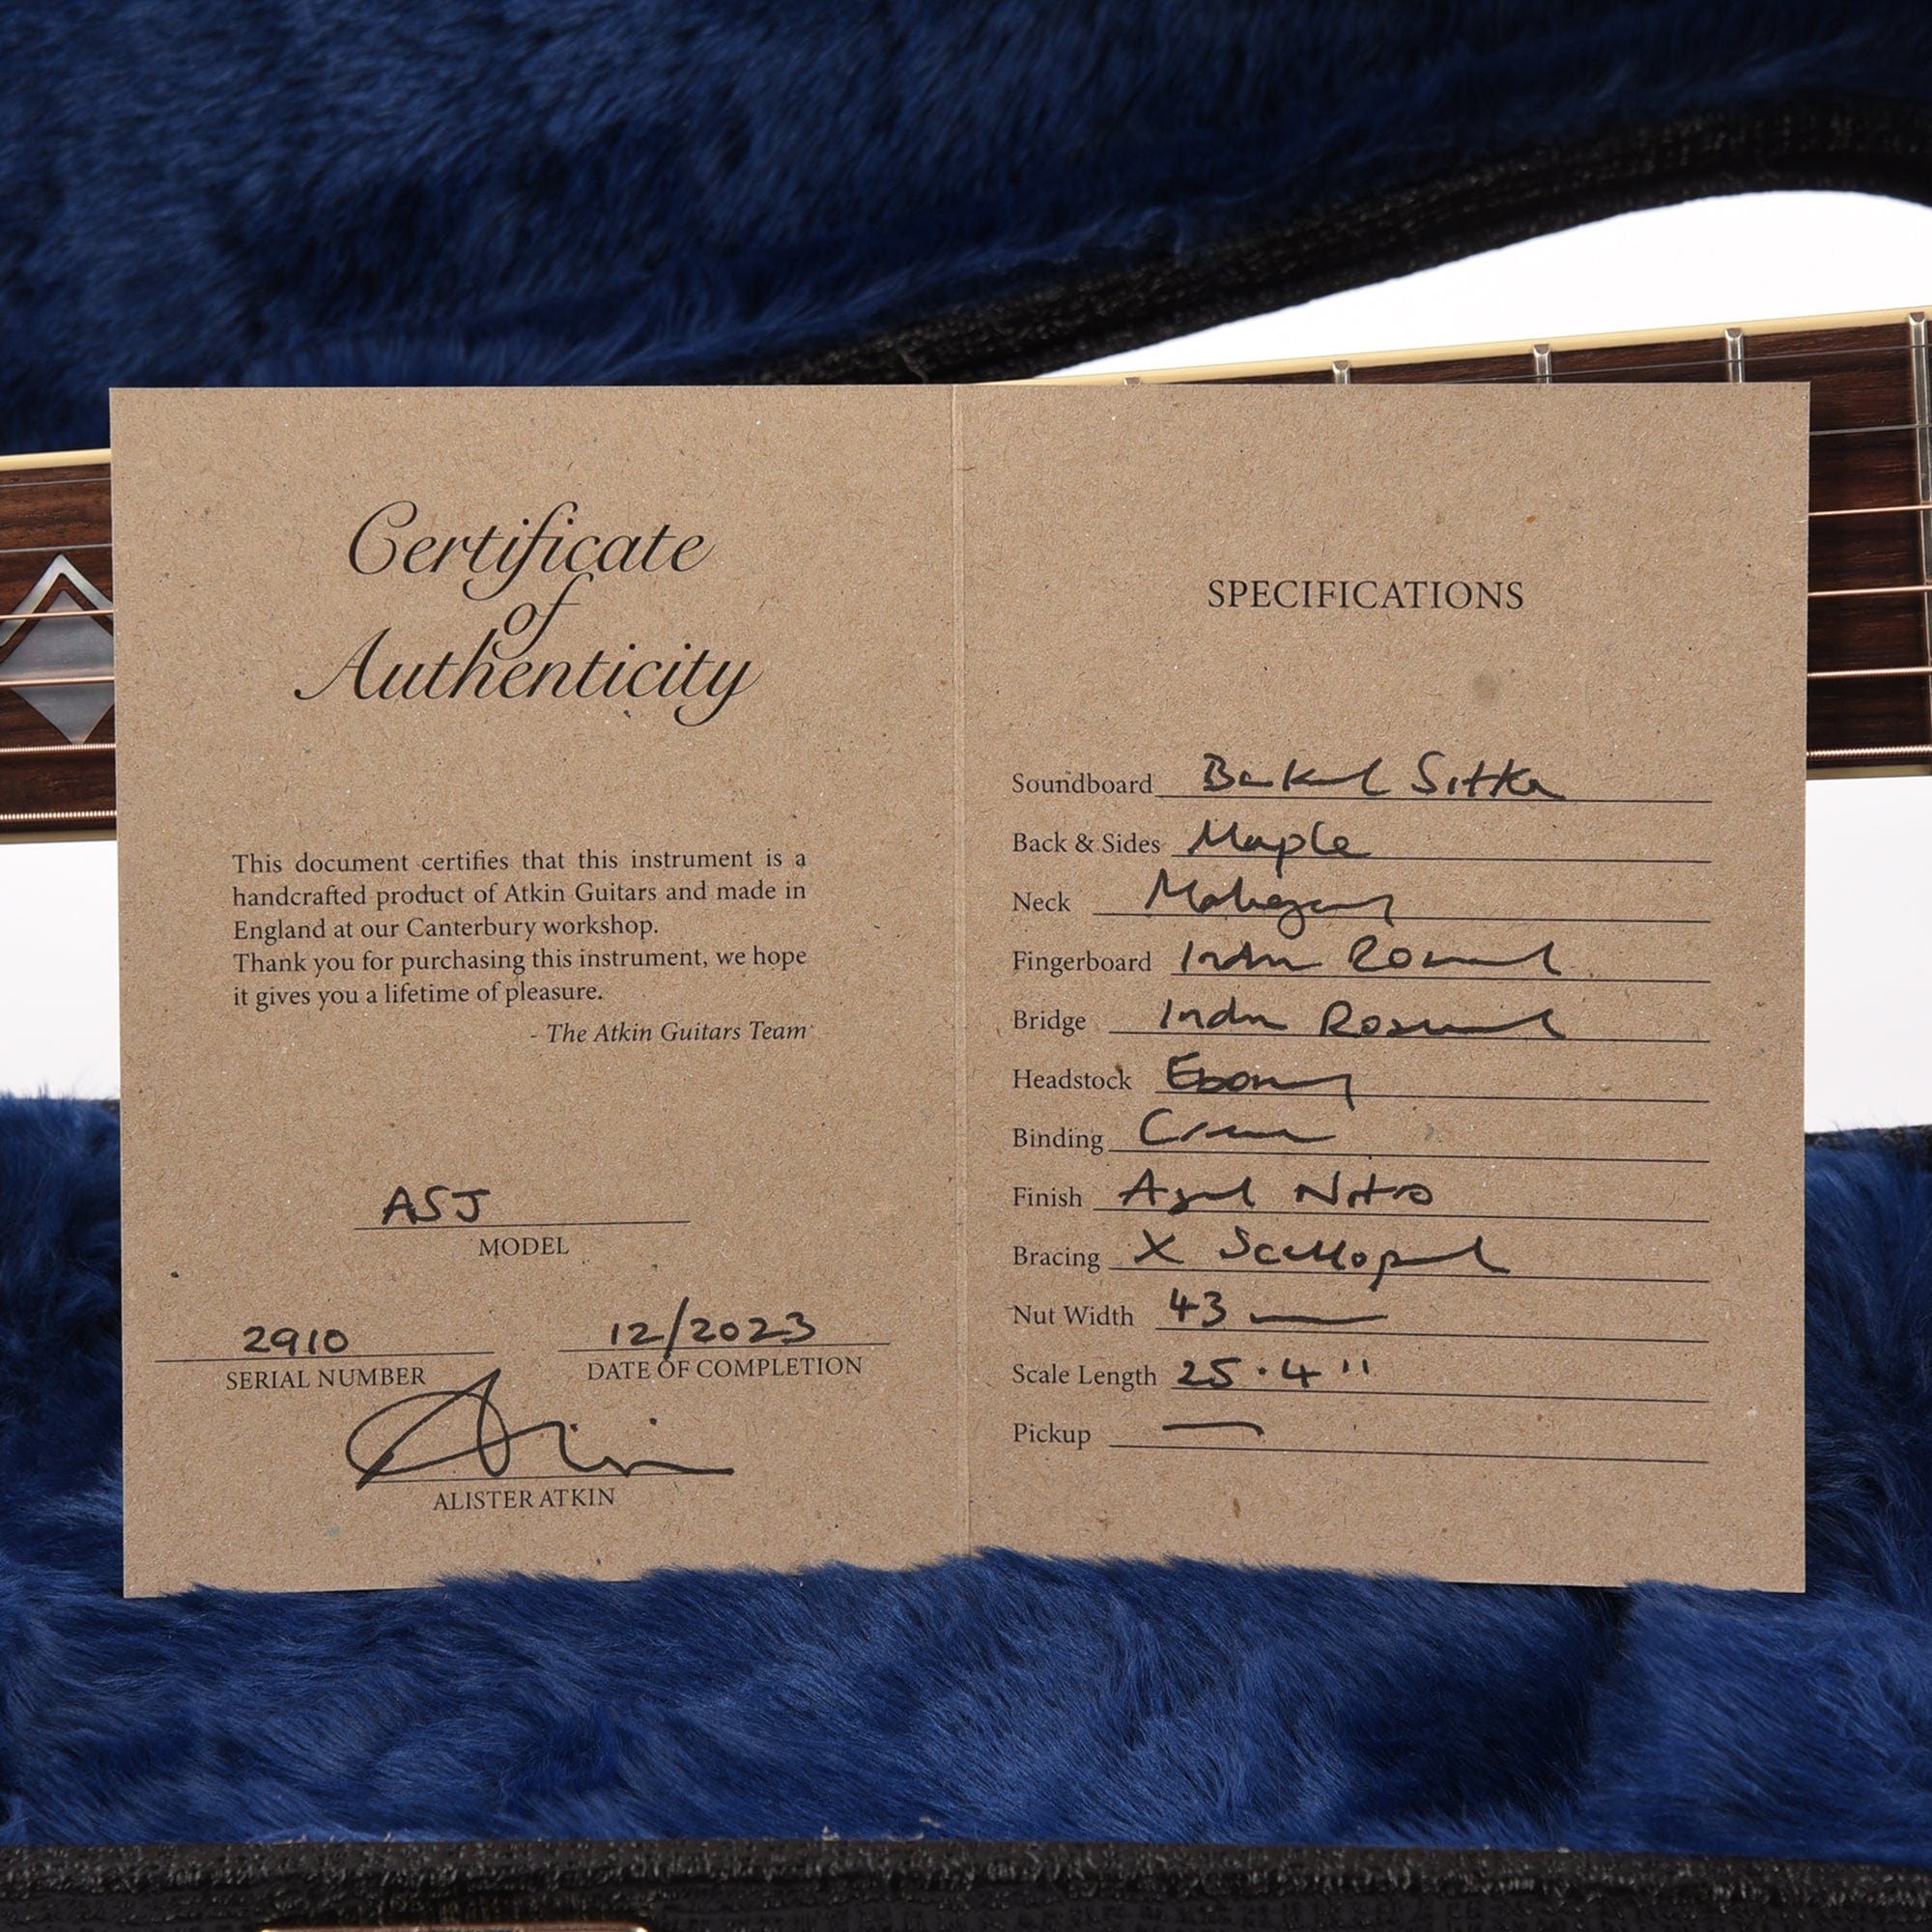 Certificate
of
Authenticity
This document certifies that this instrument is a
handcrafted product of Atkin Guitars and made in
England at our Canterbury workshop.
Thank you for purchasing this instrument, we hope
it gives you a lifetime of pleasure.
- The Atkin Guitars Team
ASJ
MODEL
2910
SERIAL NUMBER
12/2023
DATE OF COMPLETION
ALISTER ATKIN
SPECIFICATIONS
Soundboard Baked Sitka
Back & Sides Maple
Neck Mahogany
Fingerboard Indian Rosewood
Bridge Indian Rosewood
Headstock Ebony
Binding Cream
Finish Aged Nitro
Bracing X Scalloped
Nut Width 43
Scale Length 25.4"
Pickup —